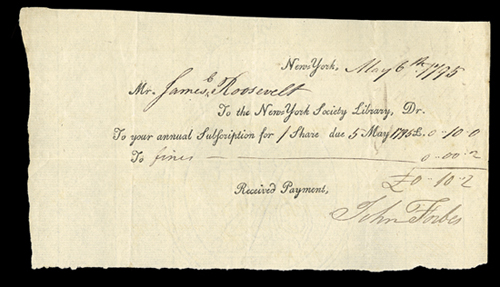 New York, May 6th 1795
Mr. James Roosevelt
To the New York Society Library, Dr.
To your annual Subscription for 1 Share due 5 May 1795 £. 0-10 0
To fines — 0-00-2
£0-10-2
Received Payment,
John Forbes